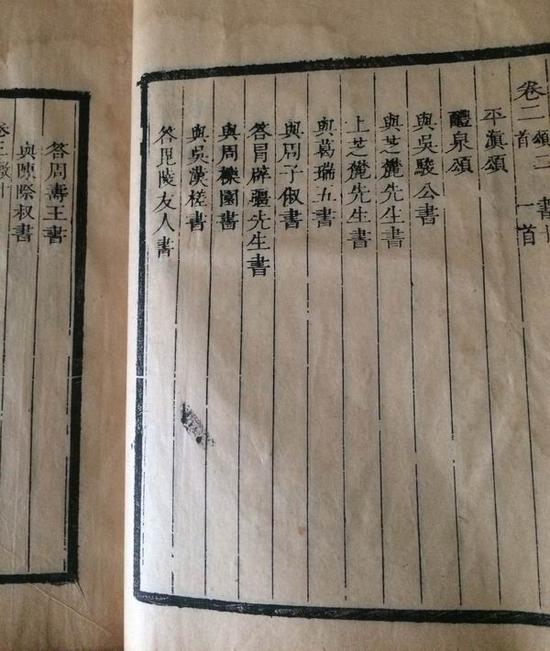 卷二頌二首 書十一首
平滇頌
醴泉頌
與吳駿公書
與芝麓先生書
上芝麓先生書
與葛瑞五書
與周子俶書
答冒辟疆先生書
與周櫟園書
與吳漢槎書
答毘陵友人書
答周壽王書
與陳際叔書
卷三